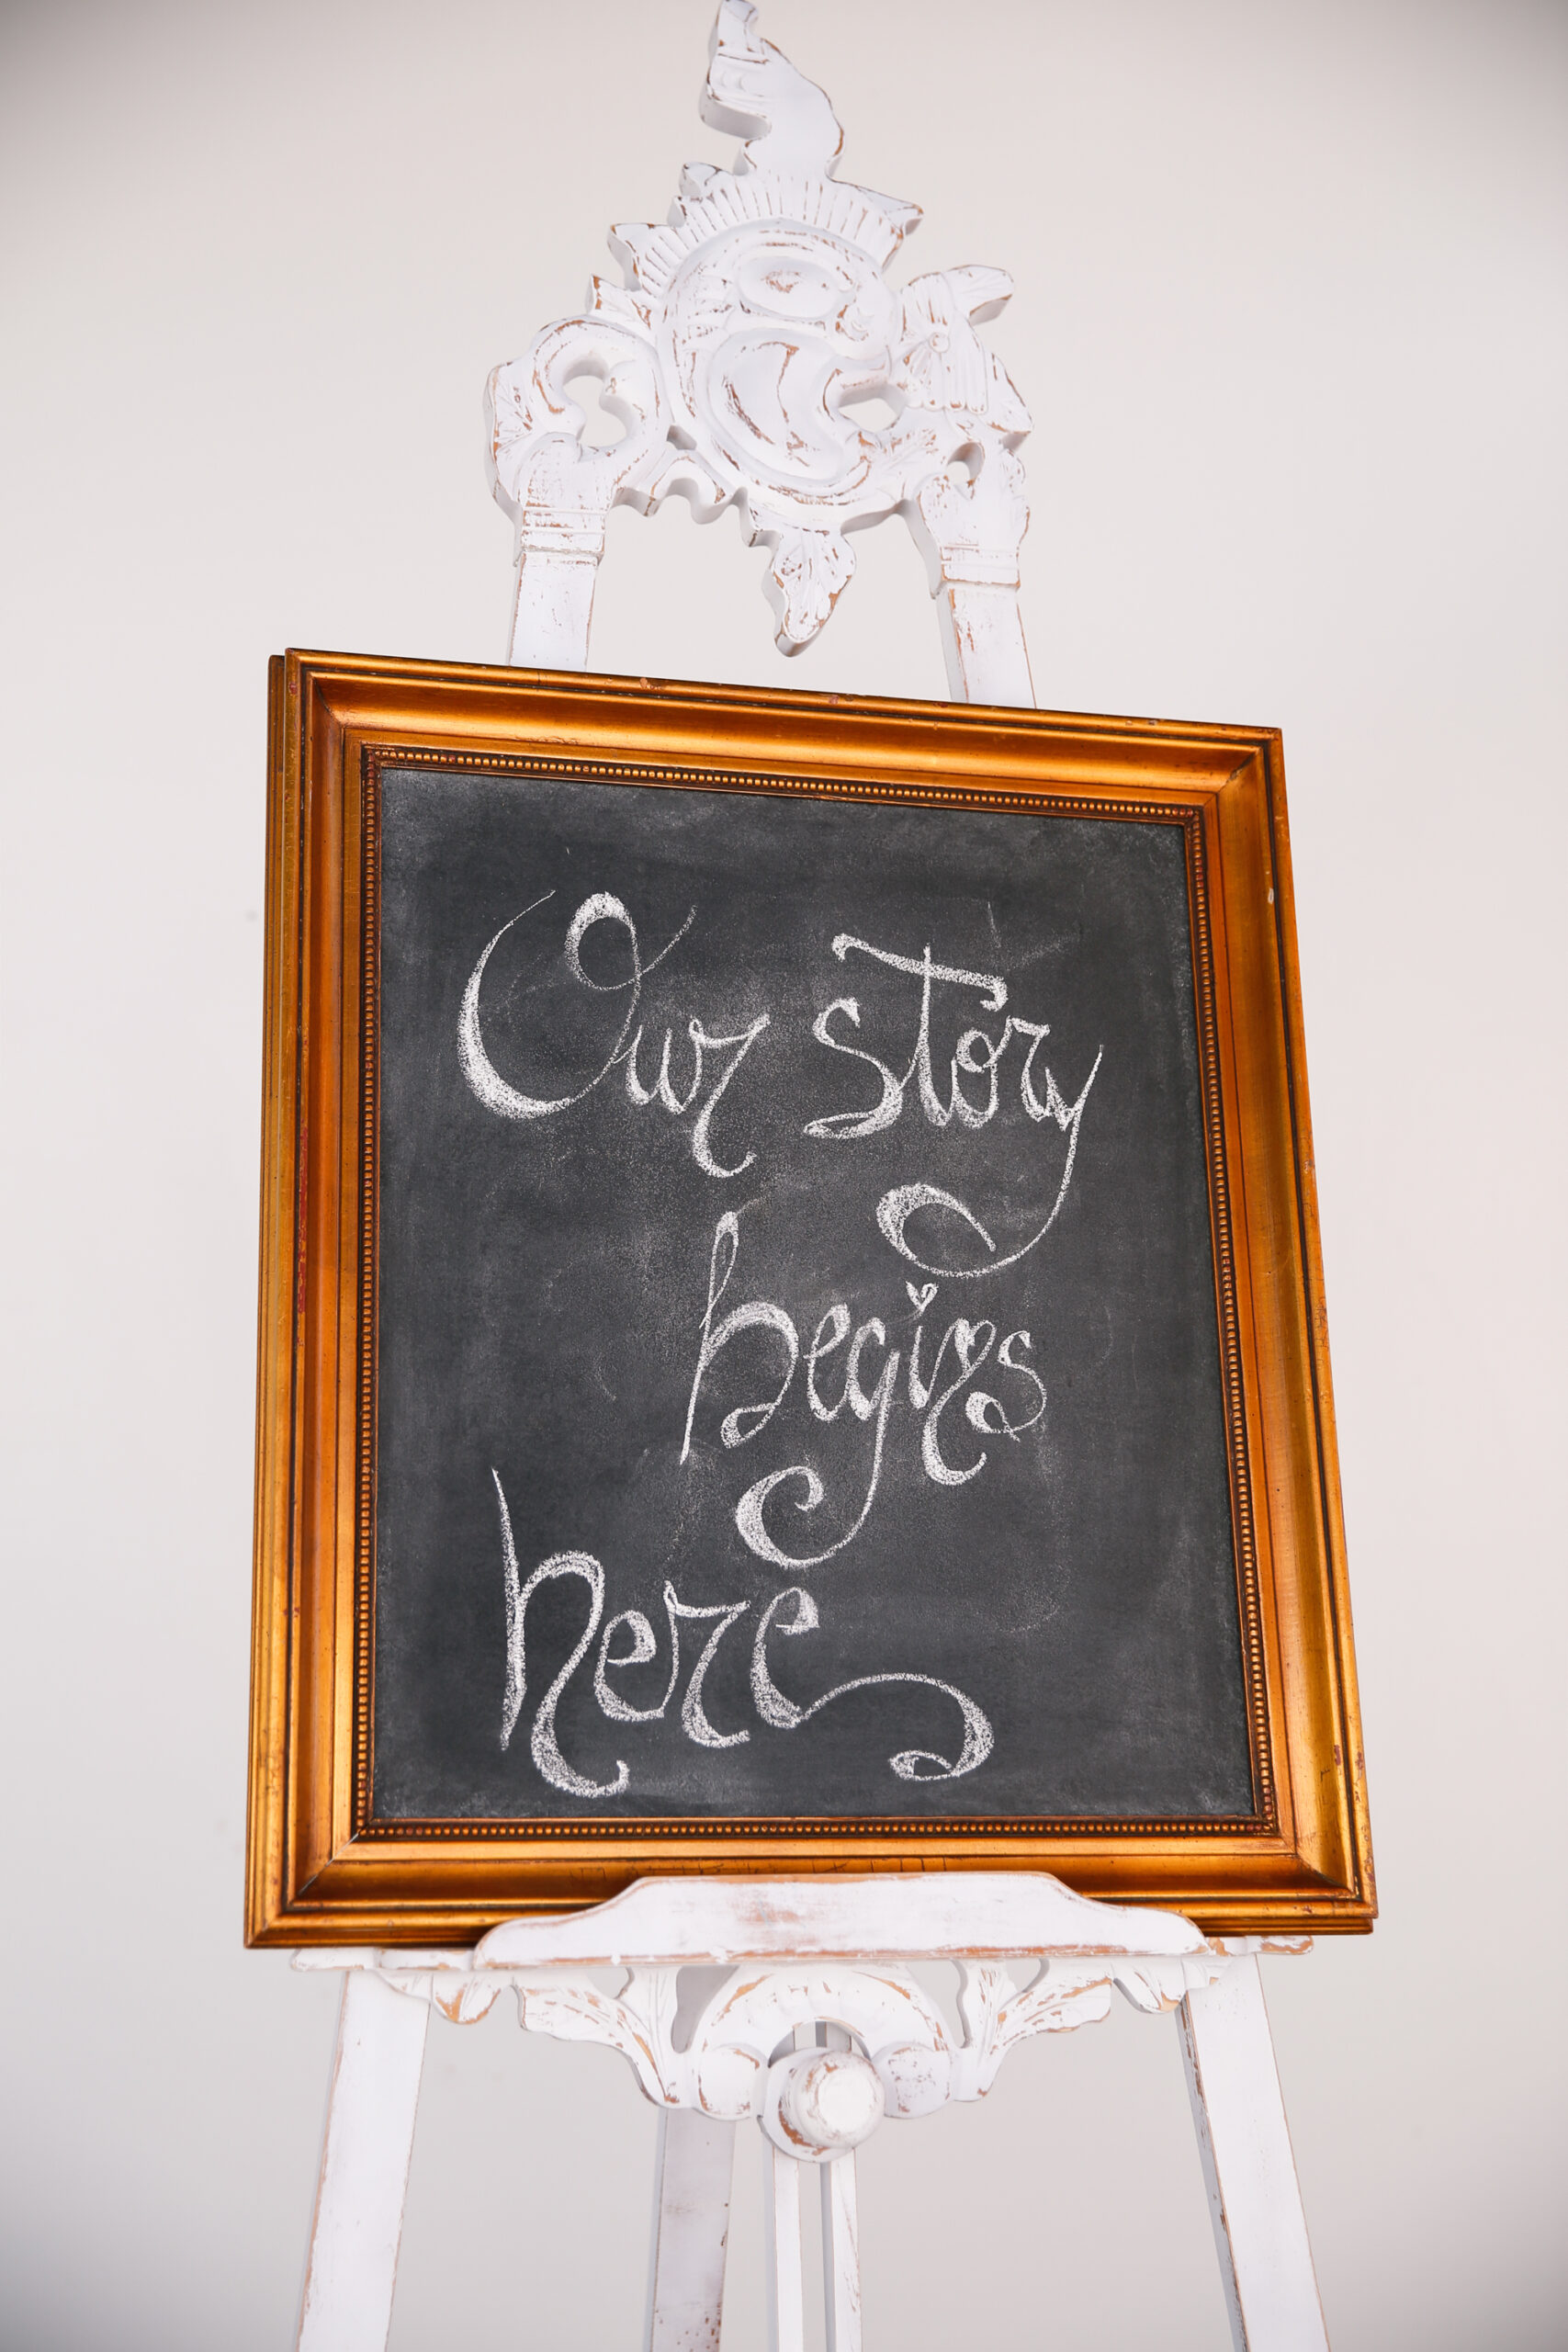 Our story
begins
here